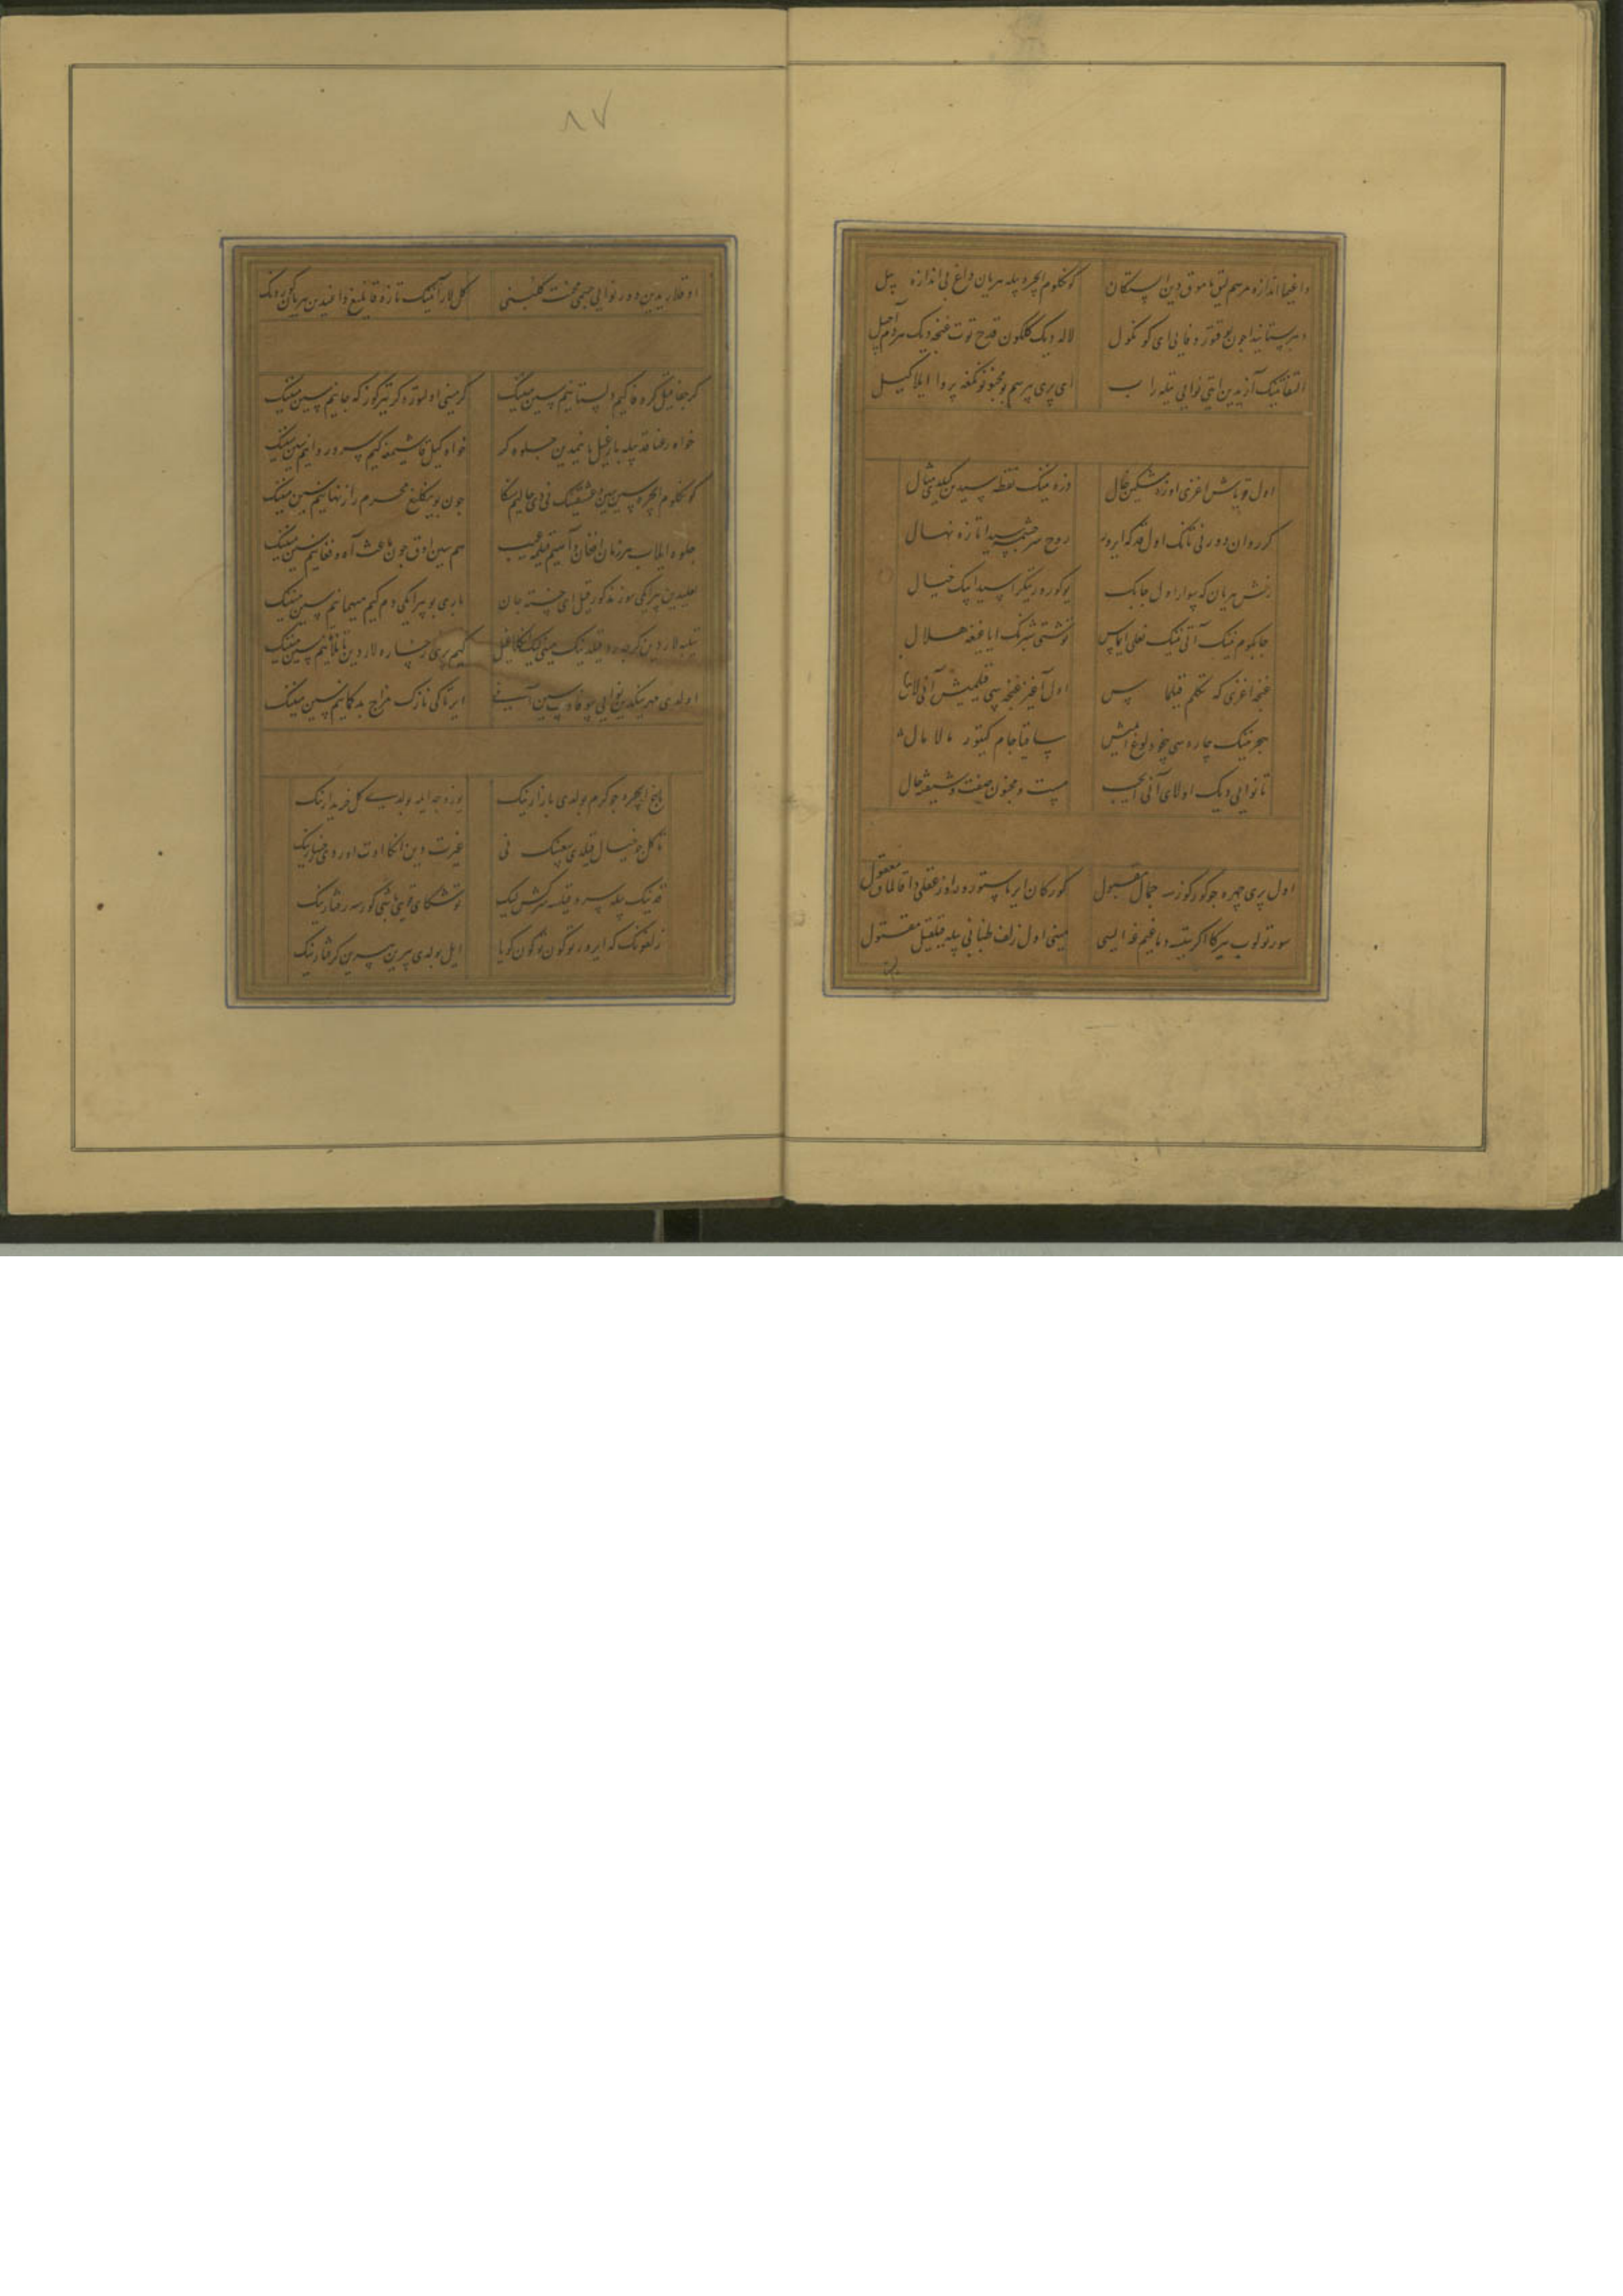 داغیما اندازه مرهم لیق ماموق دین ایستکان کونکلوم ایچره پیله هریان داغ بی اندازه بیل
دهر بستانیدا چون یوقتور وفا بی ای کونکول لاله دیک کلکون قدح توت غنچه دیک هر دم آجیل
التفاتینک آزیدین ایتی نوایی تیلبه راب ای پری پرهم بو مجنونونکغه پروا ایلاکیل
اول قویاش اغزی اوزه مشکین خال ذره نینک نقطه سیدین کیلدی مثال
کر روان دور نی تانک اول قد که ایرور روح سرچشمه سیدا تازه نهال
رخش هریان که سوار اول چابک یوکورور تیکراسیدا پیک خیال
چابکوم نینک آتی نینک نعلی ایماس توشتی شبرنک ایاغیغه هلال
غنچه اغزی که تکلم قیلماس اول آغیز غنچه سی قیلمیش آنی لال
هجر نینک چاره سی بیخودلوغ ایمیش ساقیا جام کیتور مالامال
تا نوایی دیک اولای آنی ایچیب مست و مجنون صفت و شیفته حال
اول پری چهره چو کورکوزسه جمال مقبول کورکان ایرماستور اوز عقلی دا قالماق معقول
سورتولوب ییرکا اکر یتسه دماغیم نه ایسی مینی اول زلف طنابی بیله قیلغیل مقتول
۸۷
اوقلاریدین دور نوایی جسمی محنت کلبنی کل لار آنینک تازه قانلیغ داغیدین هریان کورونک
کر جفا قیل کر وفا کیم دلستانیم سین مینینک کر مینی اولتور و کر تیرکوز که جانیم سین مینینک
خواه رعنا قد بیله بارغیل یانیمدین جلوه کر خواه کیل قاشیمغه کیم سرو روانیم سین مینینک
کونکلوم ایچره سین سین و عشقینک نی دی حالیم سنکا چون بو ینکلیغ محرم راز نهانیم سین مینینک
جلوه ایلاب هر زمان افغان و آهیم قیلمه عیب هم سین اوق چون باعث آه و فغانیم سین مینینک
لعلیدین بیر ایکی سوز مذکور قیل ای خسته جان باری بو بیر ایکی دم کیم میهمانیم سین مینینک
تیلبه لار دین کرچه رد قیلدینک مینی لیکن کا قیل کیم پری رخساره لار دین تانلاغانیم سین مینینک
اولدی مهرینکدین نوایی بیوفا دیب سین آنی ایرتاکی نازک مزاج بدکمانیم سین مینینک
باغ ایچره چو کرم بولدی بازارینک یوز وجد ایله بولدی کل خریدارینک
تا کل چو خیال قیلدی نی غیرت دین انکا اوت اوردی رخسارینک
قدینک بیله سرو قیلسه سرکش لیک توشکای قوییی نی کورسه رفتارینک
زلفونک که ایرور توکون توکون کویا ایل بولدی بیرین بیرین کرفتارینک